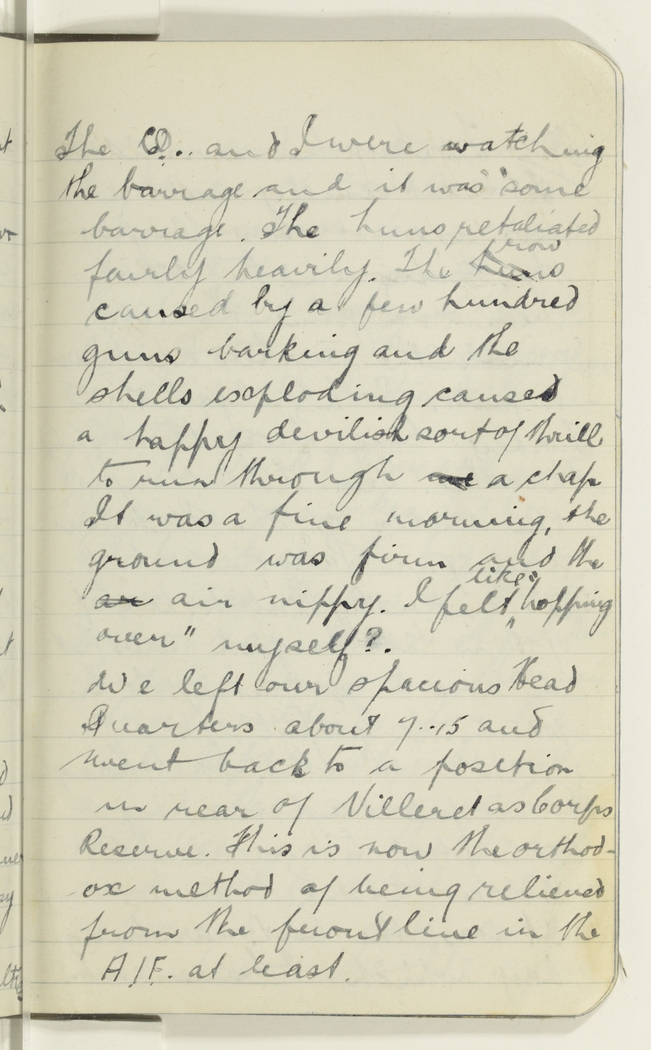 The Q.. and I were watching
the barrage and it was "some
barrage. The huns retaliated
fairly heavily. The row
caused by a few hundred
guns barking and the
shells exploding caused
a happy devilish sort of thrill
to run through a chap
It was a fine morning, the
ground was firm and the
air nippy. I felt like "hopping
over" myself?.
We left our spacious Head
Quarters about 7..15 and
went back to a position
in rear of Villeret as Corps
Reserve. This is now the orthod-
ox method of being relieved
from the front line in the
A/F. at least.